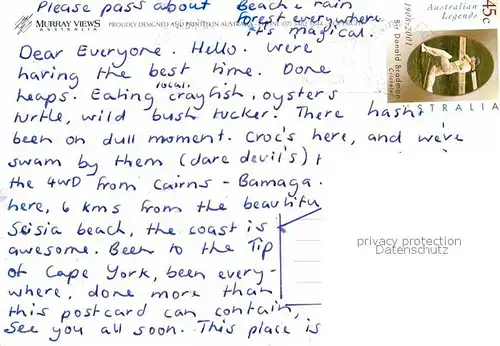 Please pass about Beach & rain
forest everywhere
it's magical.
MURRAY VIEWS
AUSTRALIA
PROUDLY DESIGNED AND PRINTED IN AUSTRALIA
Dear Everyone. Hello. We're
having the best time. Done
heaps. Eating local crayfish, oysters
turtle, wild bush tucker. There hasn't
been on dull moment. Croc's here, and we've
swam by them (dare devil's) +
the 4WD from Cairns - Bamaga.
here, 6 kms from the beautifu
Seisia beach, the coast is
awesome. Been to the Tip
of Cape York, been every-
where, done more than
this postcard can contain,
See you all soon. This place is
Australian
Legends
45c
Sir Donald Bradman
Cricketer
AUSTRALIA
privacy protection
Datenschutz